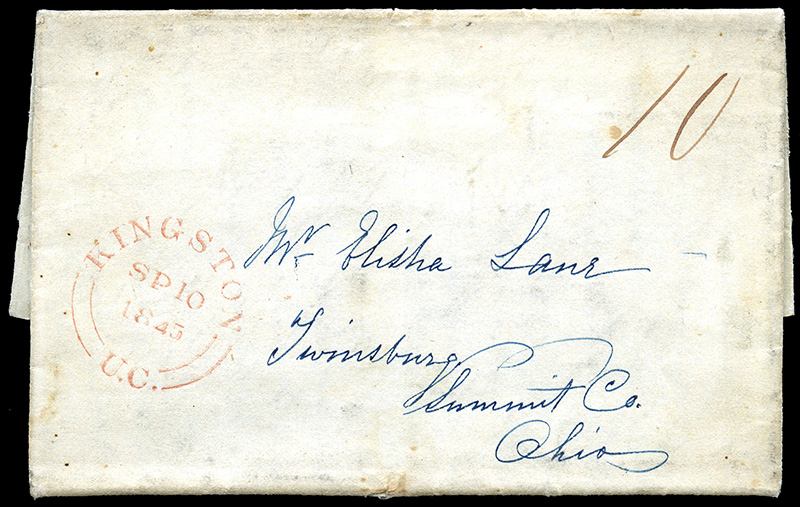 10
KINGSTON
SP 10
1845
U.C.
Mr Elisha Lane
Twinsburg
Summit Co.
Ohio